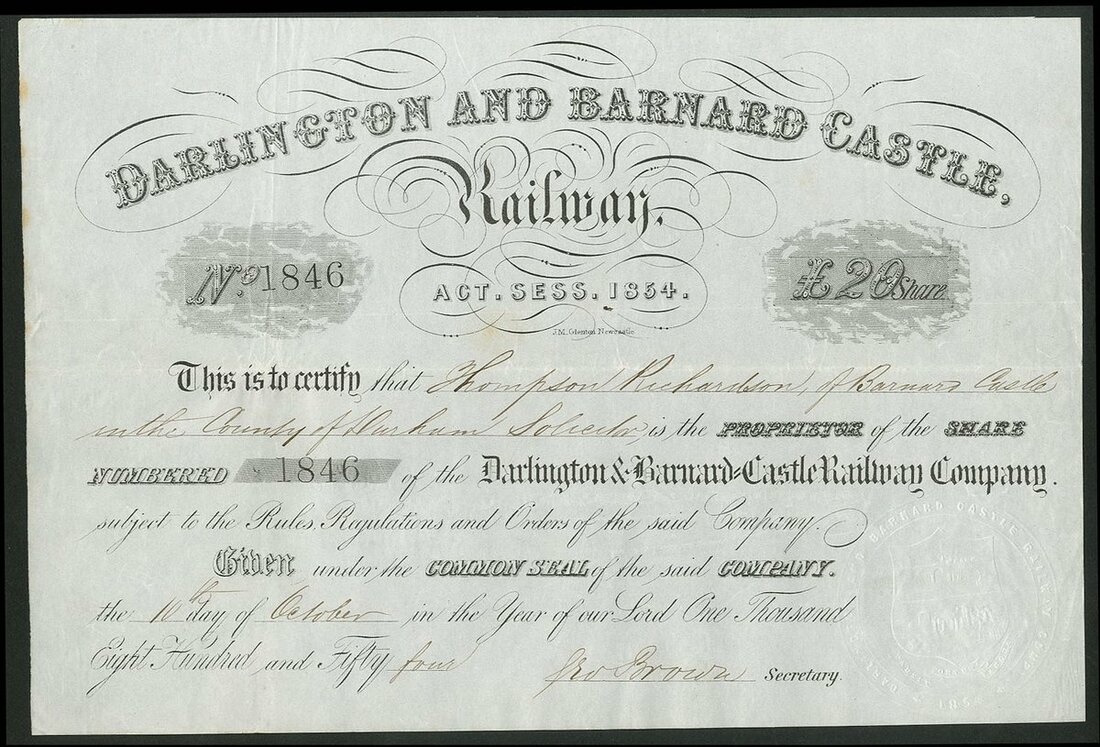 DARLINGTON AND BARNARD CASTLE,
Railway.
No. 1846
ACT. SESS. 1854.
£20 Share
J.M. Glenton Newcastle
This is to certify that Thompson Richardson, of Barnard Castle
in the County of Durham Solicitor is the PROPRIETOR of the SHARE
NUMBERED 1846 of the Darlington & Barnard=Castle Railway Company.
subject to the Rules, Regulations and Orders of the said Company.
Given under the COMMON SEAL of the said COMPANY.
the 10th day of October in the Year of our Lord One Thousand
Eight Hundred and Fifty four Geo Brown Secretary.
BARNARD CASTLE RAILWAY